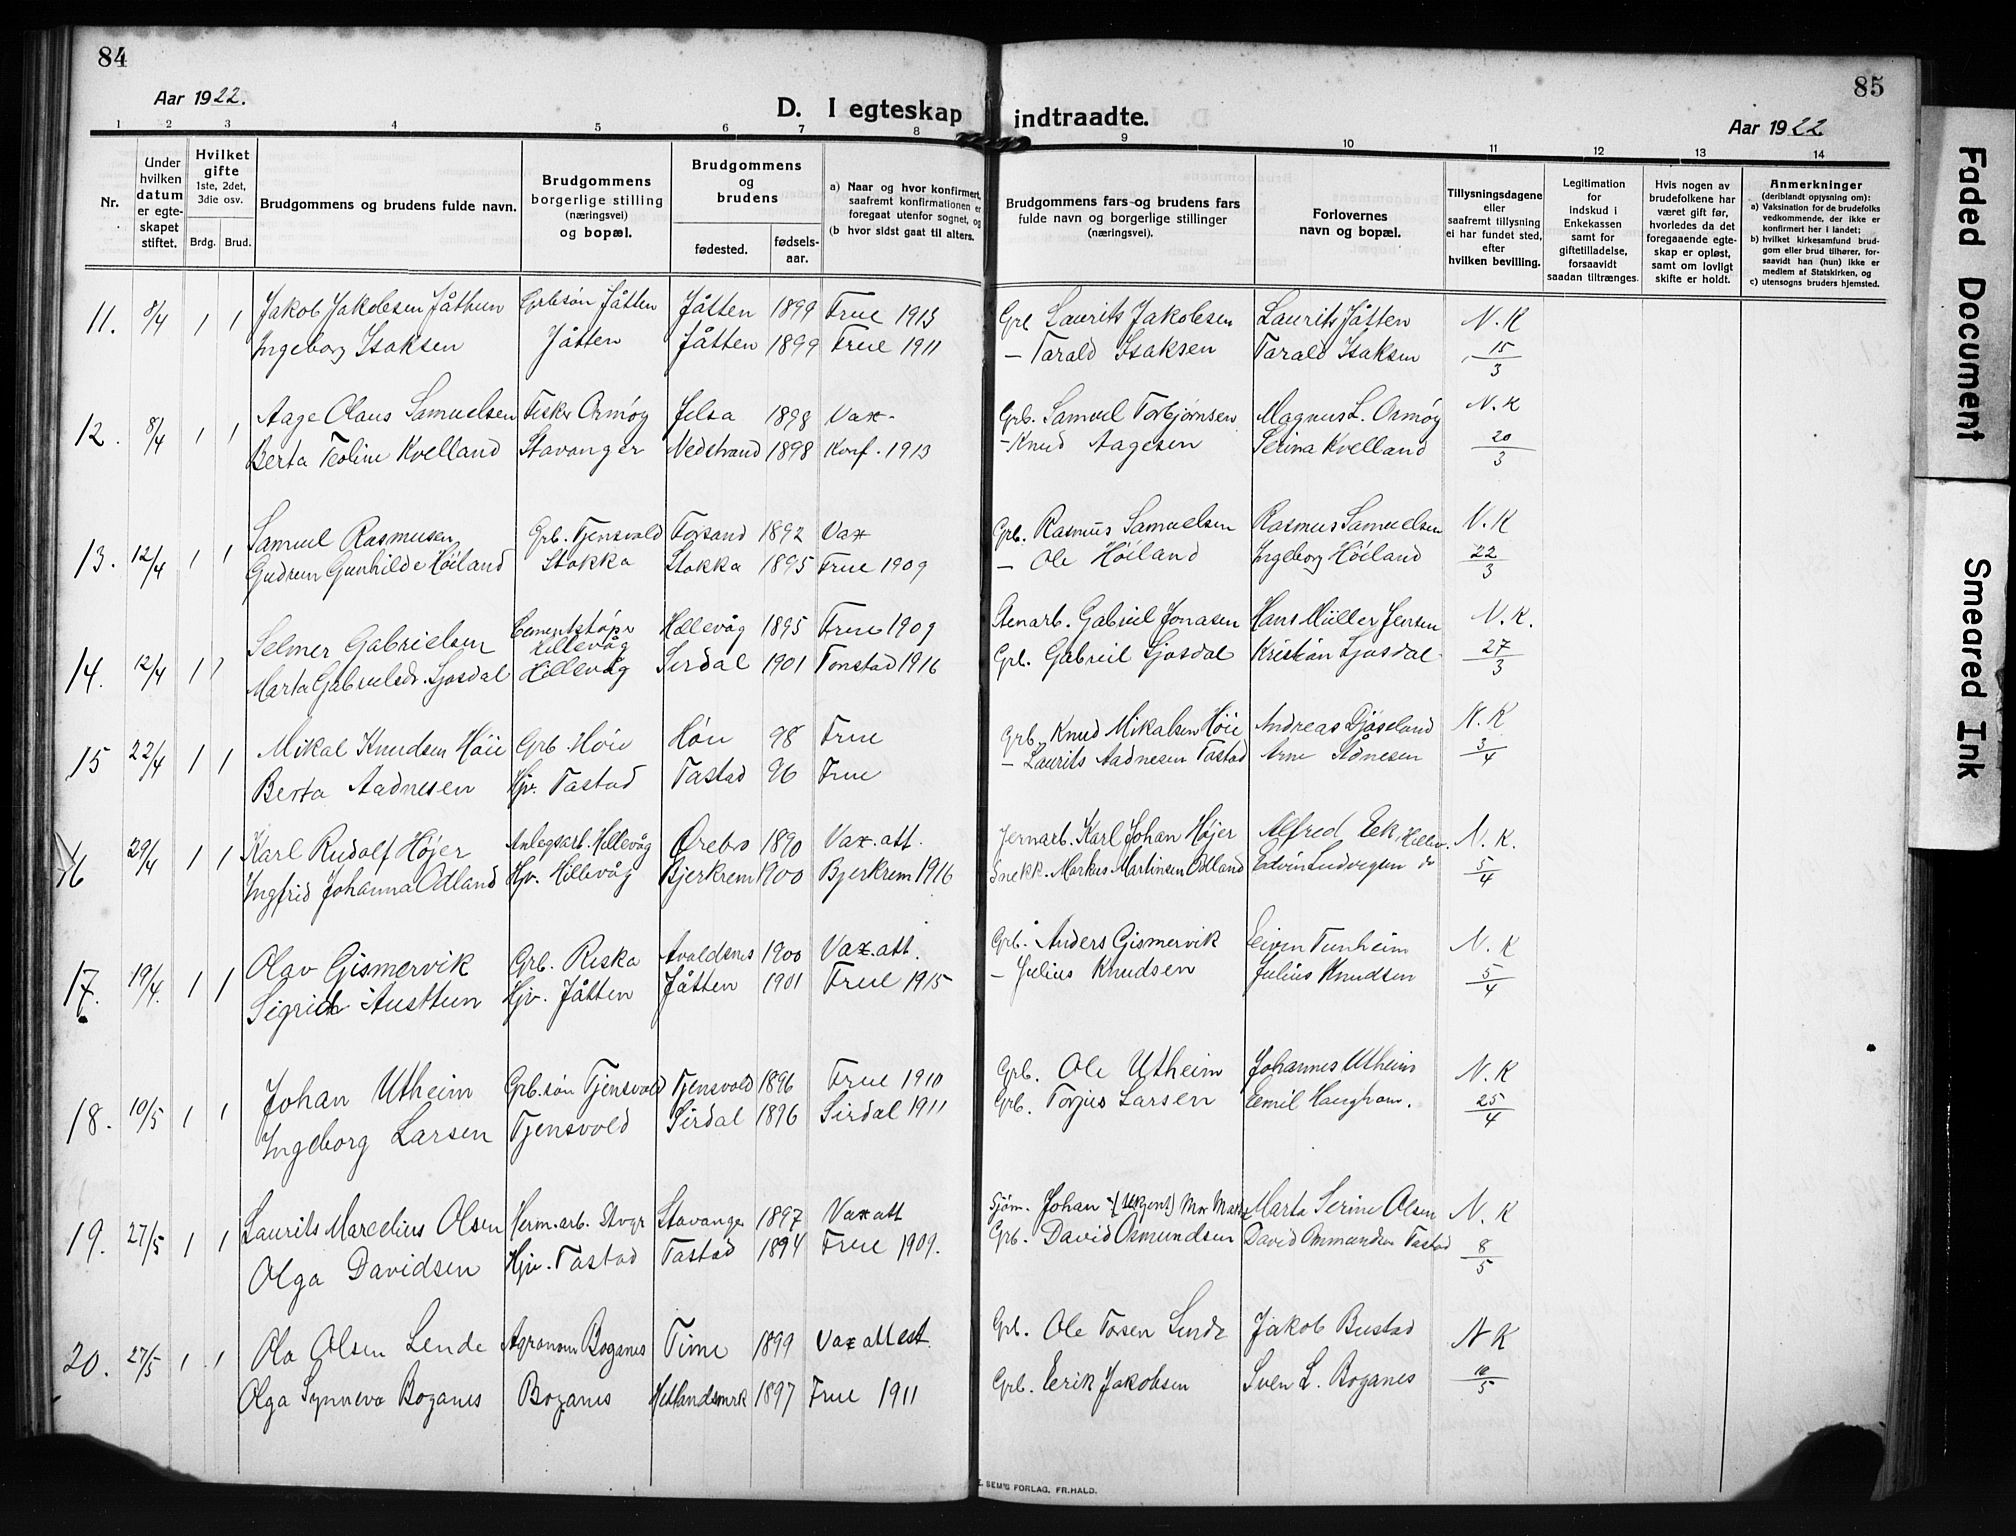 84
Aar 1922.
D. I egteskap
1 2 3 4 5 6 7 8
Nr.
Under hvilken datum er egte-skapet stiftet.
Hvilket gifte
1ste, 2det, 3die osv.
Brdg. Brud.
Brudgommens og brudens fulde navn.
Brudgommens borgerlige stilling (næringsvei) og bopæl.
Brudgommens og brudens
fødested. fødsels-aar.
a) Naar og hvor konfirmert, saafremt konfirmationen er foregaat utenfor sognet, og
(b hvor sidst gaat til alters.
11. 8/4 1 1 Jakob Jakobsen Jåthun Grbsøn Jåtten Jåtten 1899 Frue 1913
Ingeborg Isaksen Jåtten Jåtten 1899 Frue 1911
12. 8/4 1 1 Aage Olaus Samuelsen Fisker Ormøy Jelsa 1898 Vax.
Berta Teoline Kvelland Stavanger Nedstrand 1898 Konf. 1913
13. 12/4 1 1 Samuel Rasmusen Grb. Tjensvold Forsand 1892 Vax
Gudrun Gunhilde Høiland Stokka Stokka 1895 Frue 1909
14. 12/4 1 1 Selmer Gabrielsen Cementstøper Hillevåg Hillevåg 1895 Frue 1909
Marta Gabrielsdr. Ljosdal Hillevåg Sirdal 1901 Tonstad 1916
15 22/4 1 1 Mikal Knudsen Høie Grb Høie Høie 98 Frue
Berta Aadnesen Hjv. Tastad Tastad 96 Frue
16 29/4 1 1 Karl Rudolf Højer Anlegsarb. Hillevåg Ørebro 1890 Vax. att.
Ingfrid Johanna Odland Hjv. Hillevåg Bjerkrem 1900 Bjerkrem 1916
17. 19/4. 1 1 Olav Gismervik Grb. Riska Avaldsnes 1900 Vax. att.
Sigrid Austtun Hjv. Jåtten Jåtten 1901 Frue 1915
18. 10/5 1 1 Johan Utheim Grb.søn Tjensvold Tjensvold 1896 Frue 1910
Ingeborg Larsen Tjensvold Sirdal 1896 Sirdal 1911
19. 27/5 1 1 Laurits Marcelius Olsen Herm.arb. Stvgr Stavanger 1897 Vax att
Olga Davidsen Hjv. Tastad Tastad 1894 Frue 1909.
20. 27/5 1 1 Ola Olsen Lende Agronom Boganes Time 1899 Vax attest.
Olga Synneva Boganes Boganes Hetlandsmrk 1897 Frue 1911
85
indtraadte.
Aar 1922
9 10 11 12 13 14
Brudgommens fars og brudens fars fulde navn og borgerlige stillinger (næringsvei).
Forlovernes navn og bopæl.
Tillysningsdagene eller saafremt tillysning ei har fundet sted, efter hvilken bevilling.
Legitimation for indskud i Enkekassen samt for giftetilladelse, forsaavidt saadan tiltrænges.
Hvis nogen av brudefolkene har været gift før, hvorledes da det foregaaende egte-skap er opløst, samt om lovligt skifte er holdt.
Anmerkninger
(deriblandt oplysning om):
a) Vaksination for de brudefolks vedkommende, der ikke er konfirmert her i landet;
b) hvilket kirkesamfund brud-gom eller brud tilhører, for-saavidt han (hun) ikke er medlem af Statskirken, og
c) utensogns bruders hjemsted.
Grb Laurits Jakobsen Laurits Jåtten N. K
— Tarald Isaksen Tarald Isaksen 15/3
Grb. Samuel Torbjørnsen Magnus L. Ormøy N. K
— Knud Aagesen Serina Kvelland 20/3
Grb. Rasmus Samuelsen Rasmus Samuelsen N. K
— Ole Høiland Ingeborg Høiland 22/3
Stenarb. Gabriel Jonasen Hans Müller Jensen N. K.
Grb. Gabriel Ljosdal Kristian Ljosdal 27/3
Grb. Knud Mikalsen Høie Andreas Djøseland N. K
— Laurits Aadnesen Tastad Arne Ådnesen 3/4
Jernarb. Karl Johan Højer Alfred Eek Hillev. N. K.
Snekk. Markus Martinsen Odland Edvin Ludvigsen do 5/4
Grb. Anders Gismervik Eivin Tunheim N. K
— Julius Knudsen Julius Knudsen 5/4
Grb. Ole Utheim Johannes Utheim N. K
Grb. Torjus Larsen Emil Haugham. 25/4
Sjøm. Johan (ukjent) Mor Marta Marta Serine Olsen N. K
Grb. David Osmundsen David Ommundsen Tastad 8/5
Grb. Ole Tosen Lende Jakob Bustad N K
Grb. Eerik Jakobsen Sven L. Boganes 10/5
E. SEM'S FORLAG, FR.HALD.
Faded Document
Smeared Ink